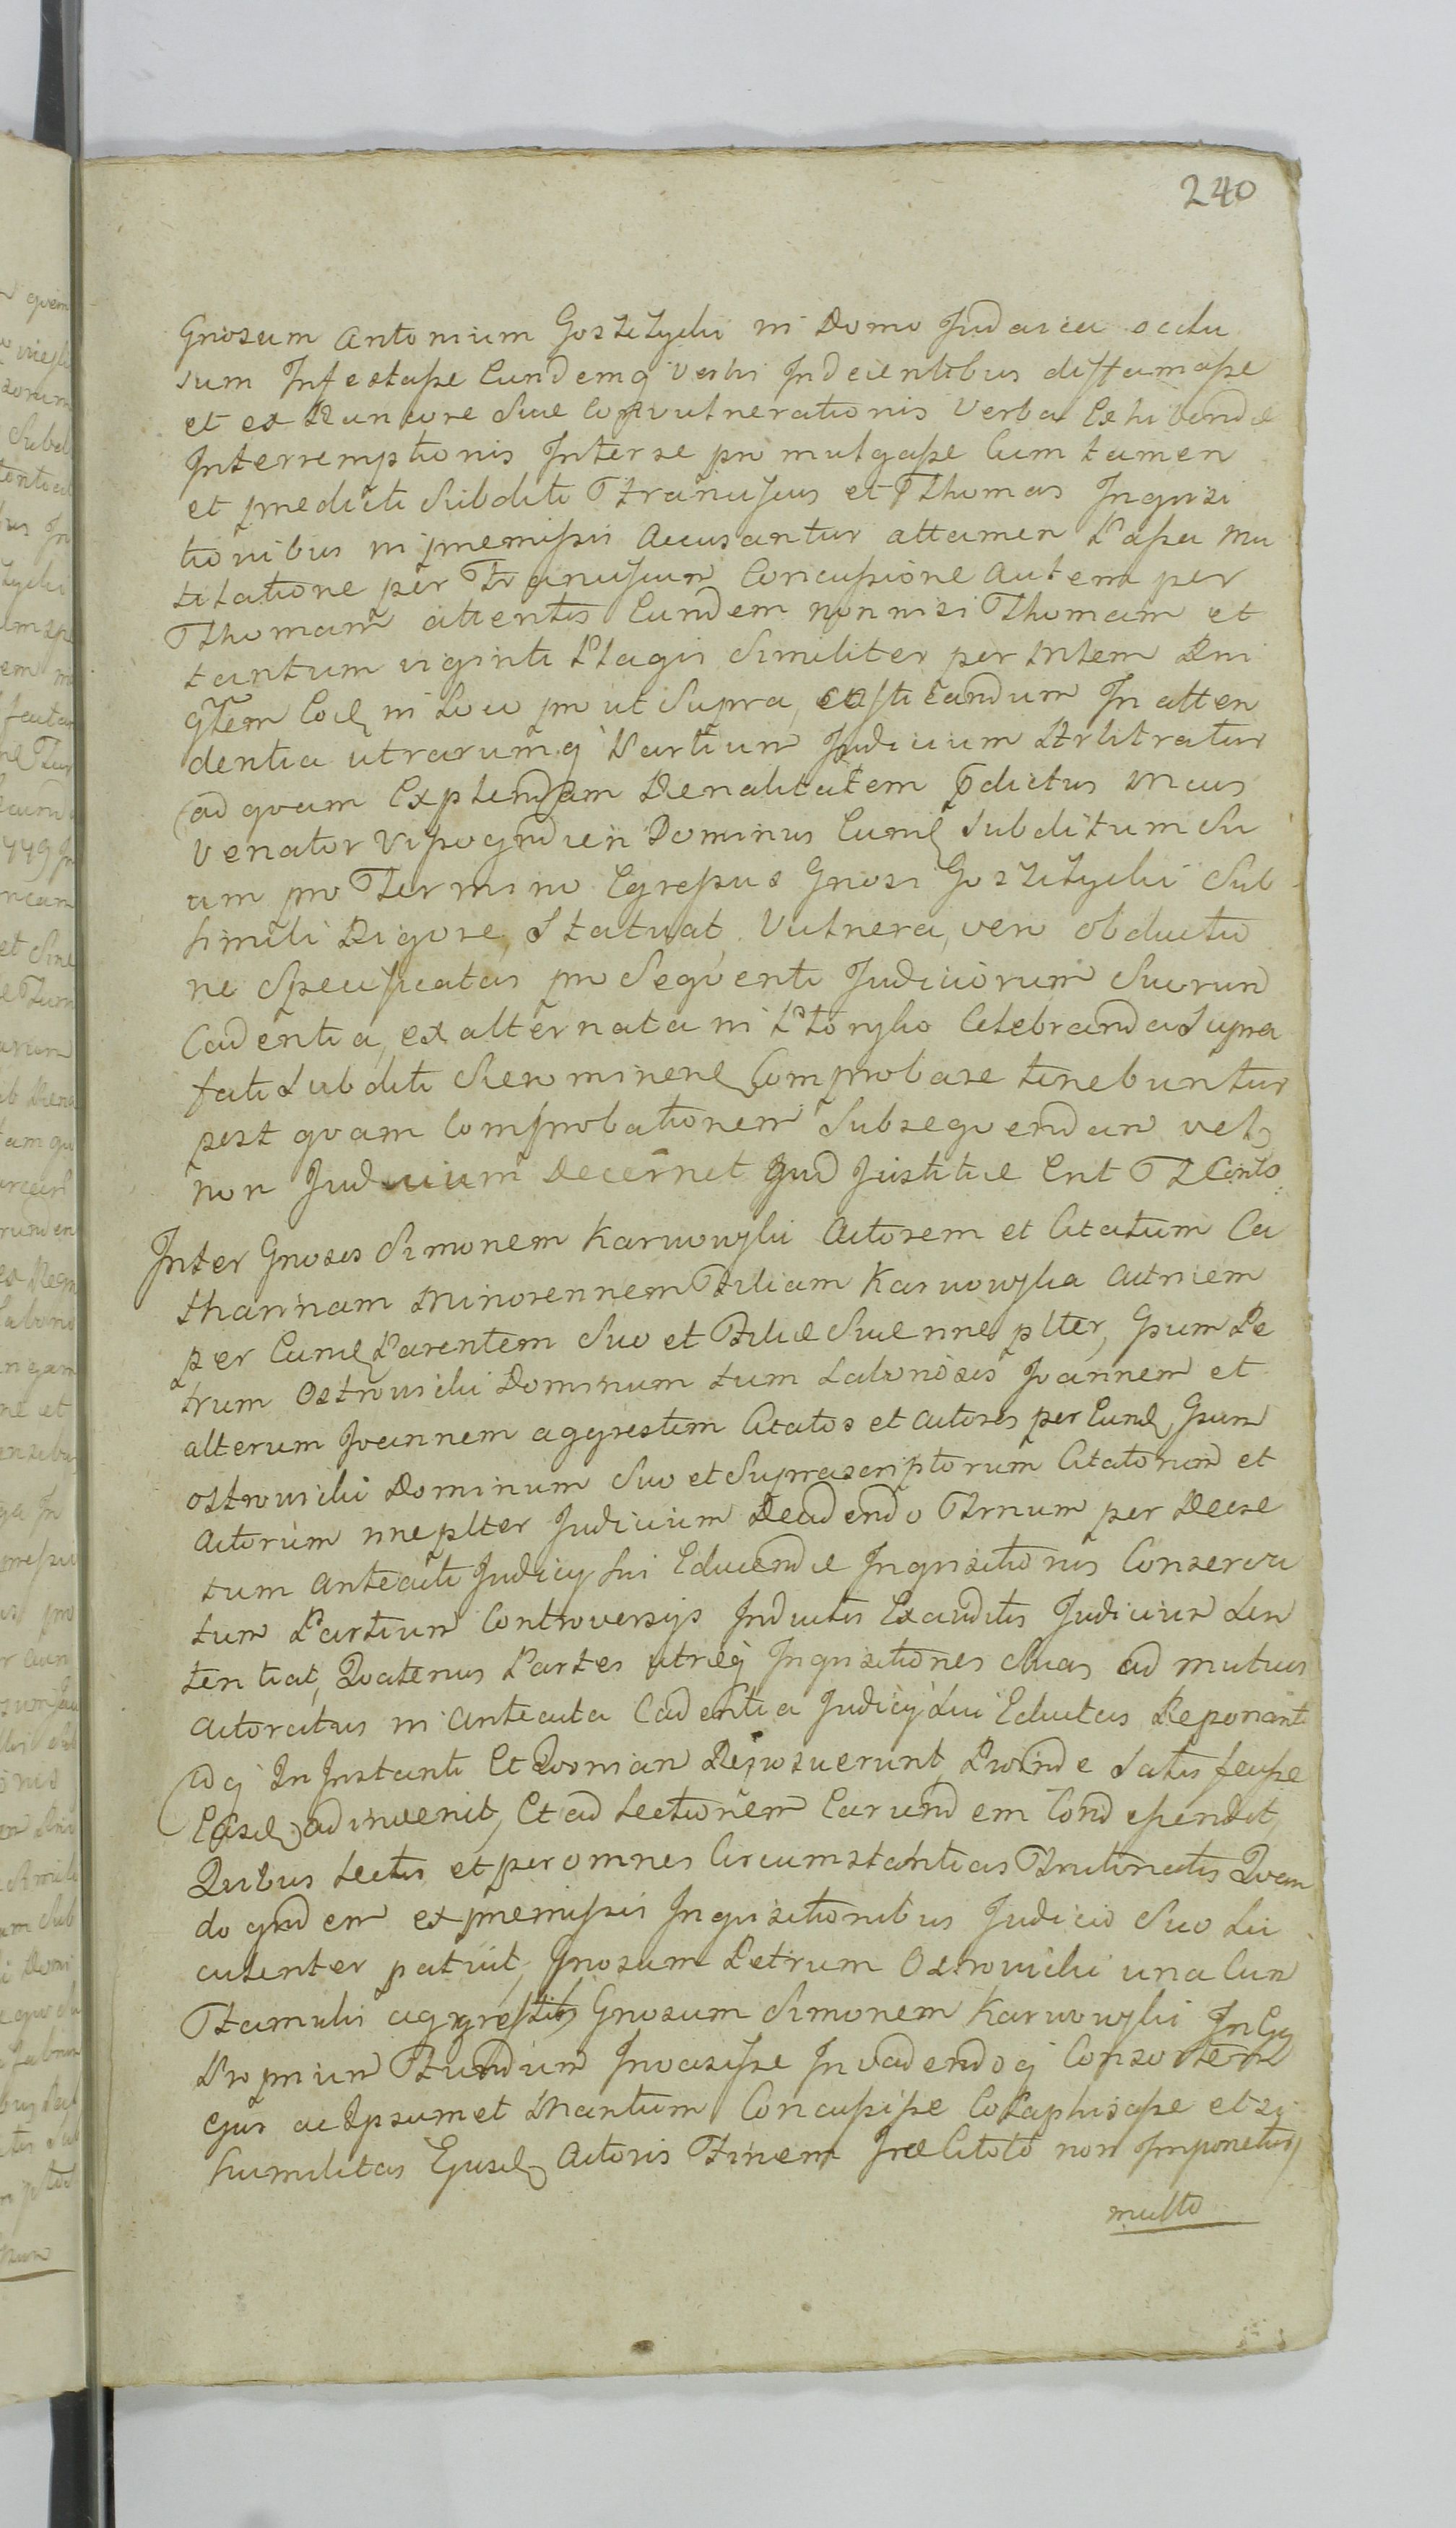 240
Gnosum Antonium Goszczycki in Domo Judaica occlu
sum Infestasse Eundemq verbis Indecentibus diffamasse
et ex Rancore Suae Convulnerationis Verba Exhibendae
Interremptionis Inter se promulgasse Cum tamen
et praedicti Subditi Franciscus et Thomas Inquisi
tionibus in praemissis Accusantur attamen Passa mu
tilatione per Franciscum Concussione Autem per
Thomam attentis Eundem non nisi Thomam et
tantum viginti Plagis Similiter per Intem Dni
in Loco prout Supra, castigandum In atten
dentia utrarumq Partium Judicium Arbitratur
ad quam Explendam Paenalitatem pdictus Mcus
Venator Dominus Eund Subditum Su
um pro Termino Egressus Gnosi Goszczycki Sub
simili Rigore, Statuat. Vulnera, vero obductio
ne Specificatas pro Sequenti Judiciorum Suorum
Cadentia, ex alternata in Celebranda Supra
fati Subditi Comprobare tenebuntur
post quam Comprobationem Subsequendam vel
non Judicium Decernet Quid Justitiae Erit
Inter Gnosos Simonem Karwowski Actorem et Citatum Ca
tharinam Minorennem Filiam Karwowska Actricem
per Eund Parentem Suo et Filiae Suae nne plter, Gsum Pe
trum Ostrowicki Dominum tum Laboriosos Joannem et
alterum Joannem agrestem Citatos et Actores per Eund Gsum
Ostrowicki Dominum Suo et Suprascriptorum Citatorum et
Actorum nne plter Judicium Decidendo Trnum per Decre
tum anteacti Judicy Sui Educendae Inquisitionis Conserva
tum Partium Controversys Inductis Exauditis Judicium Sen
tentiat, Quatenus Partes utreq Inquisitiones Suas ad mutuas
Actoratus in Anteacta Cadentia Judicy Sui Eductas Reponant
idq In Instanti Et Quoniam Deposuerunt, Proinde Satis fecisse
Easd adinvenit, Et ad Lectionem Earundem Condescendit,
Quibus Lectis et per omnes Circumstantias Trutinatis Quan
do quidem ex praemissis Inquisitionibus Judicio Suo Lu
culenter patuit, Gnosum Petrum Ostrowicki una Cum
Famulis agrestib Gnosum Simonem Karwowski In Eg
Proprium Fundum Invasisse Invadendoq Consortem
Ejus ac Ipsummet Maritum Concussisse Colaphisasse et si
humilitas Ejusd Actoris Finem Irae Citato non Imponetur
multo